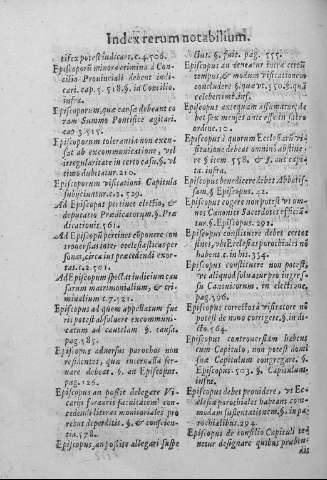 Index rerum notabilium.
tifex potest iudicare. c. 4. 506.
Episcoporũ minora crimina à Con-
silio Prouinciali debent iudi-
cari. cap. 5. 518. §. in Consilio.
infra.
Episcoporum, quæ causæ debeant co
ram Summo Pontifice agitari.
cap. 3. 515.
Episcoporum tolerantia non excu-
sat ab excommunicatione, vel
irregularitate in certo casu. §. vl
timo dubitatur. 210.
Episcoporum visitationi Capitula
subijciuntur. c. 2. 529.
Ad Episcopos pertinet electio, &
deputatio Prædicatorum. §. Præ
dicationis. 561.
Ad Episcopũ pertinet cõponere con
trouersias inter ecclesiasticas per
sonas, circa ius præcedendi exor-
tas. c. 2. 501.
Ad Episcopum spectat iudicium cau
sarum matrimonialium, & cri
minalium c. 7. 521.
Episcopus ad quem appellatum fue
rit potest absoluere excommuni-
catum ad cautelam. §. causa.
pag. 185.
Episcopus aduersus parochos non
residentes, quæ interualla ser-
uare debeat. §. an Episcopus.
pag. 126.
Episcopus an possit delegare Vi-
carijs foraneis facultatem con-
cedendi literas monitoriales pro
rebus deperditis. §. & conscien-
tia. 578.
Episcopus, an possit allegari suspe
ctus. §. fuit. pag. 555.
Episcopus an teneatur intra certũ
tempus, & modum visitationem
concludere §. quæ vt. 350. §. quã
celeberrimè. inf.
Episcopus antequam assumatur, de
bet sex menses ante esse in sacro
ordine. 10.
Episcopus à quorum Ecclesiarũ vi-
sitatione debeat omnino abstine-
re §. item 558, &
Episcopus benedicere debet Abbatis-
sam. §. Episcopus. 42.
Episcopus cogere non potest vt om-
nes Canonici Sacerdotes efficiã-
tur. §. Episcopus. 291.
Episcopus constituere debet certos
fines, vbi Ecclesiæ parochiales nõ
habent. c. in his. 334.
Episcopus constituere non potest,
vt aliquod soluatur pro ingres-
su Canonicorum, in electione.
pag. 596.
Episcopus correcta à visitatore nõ
potest de nouo corrigere, §. in di-
cto. 564.
Episcopus controuersiam habens
cum Capitulo, non potest domi
suæ Capitulum congregare. §.
Episcopus. 503. §. Capitulum.
infra.
Episcopus debet prouidere, vt Ec-
clesiæ parochiales habeant com-
modam sustentationem, §. in pa-
rochialibus. 294.
Episcopus de consilio Capituli te-
netur designare quibus præben-